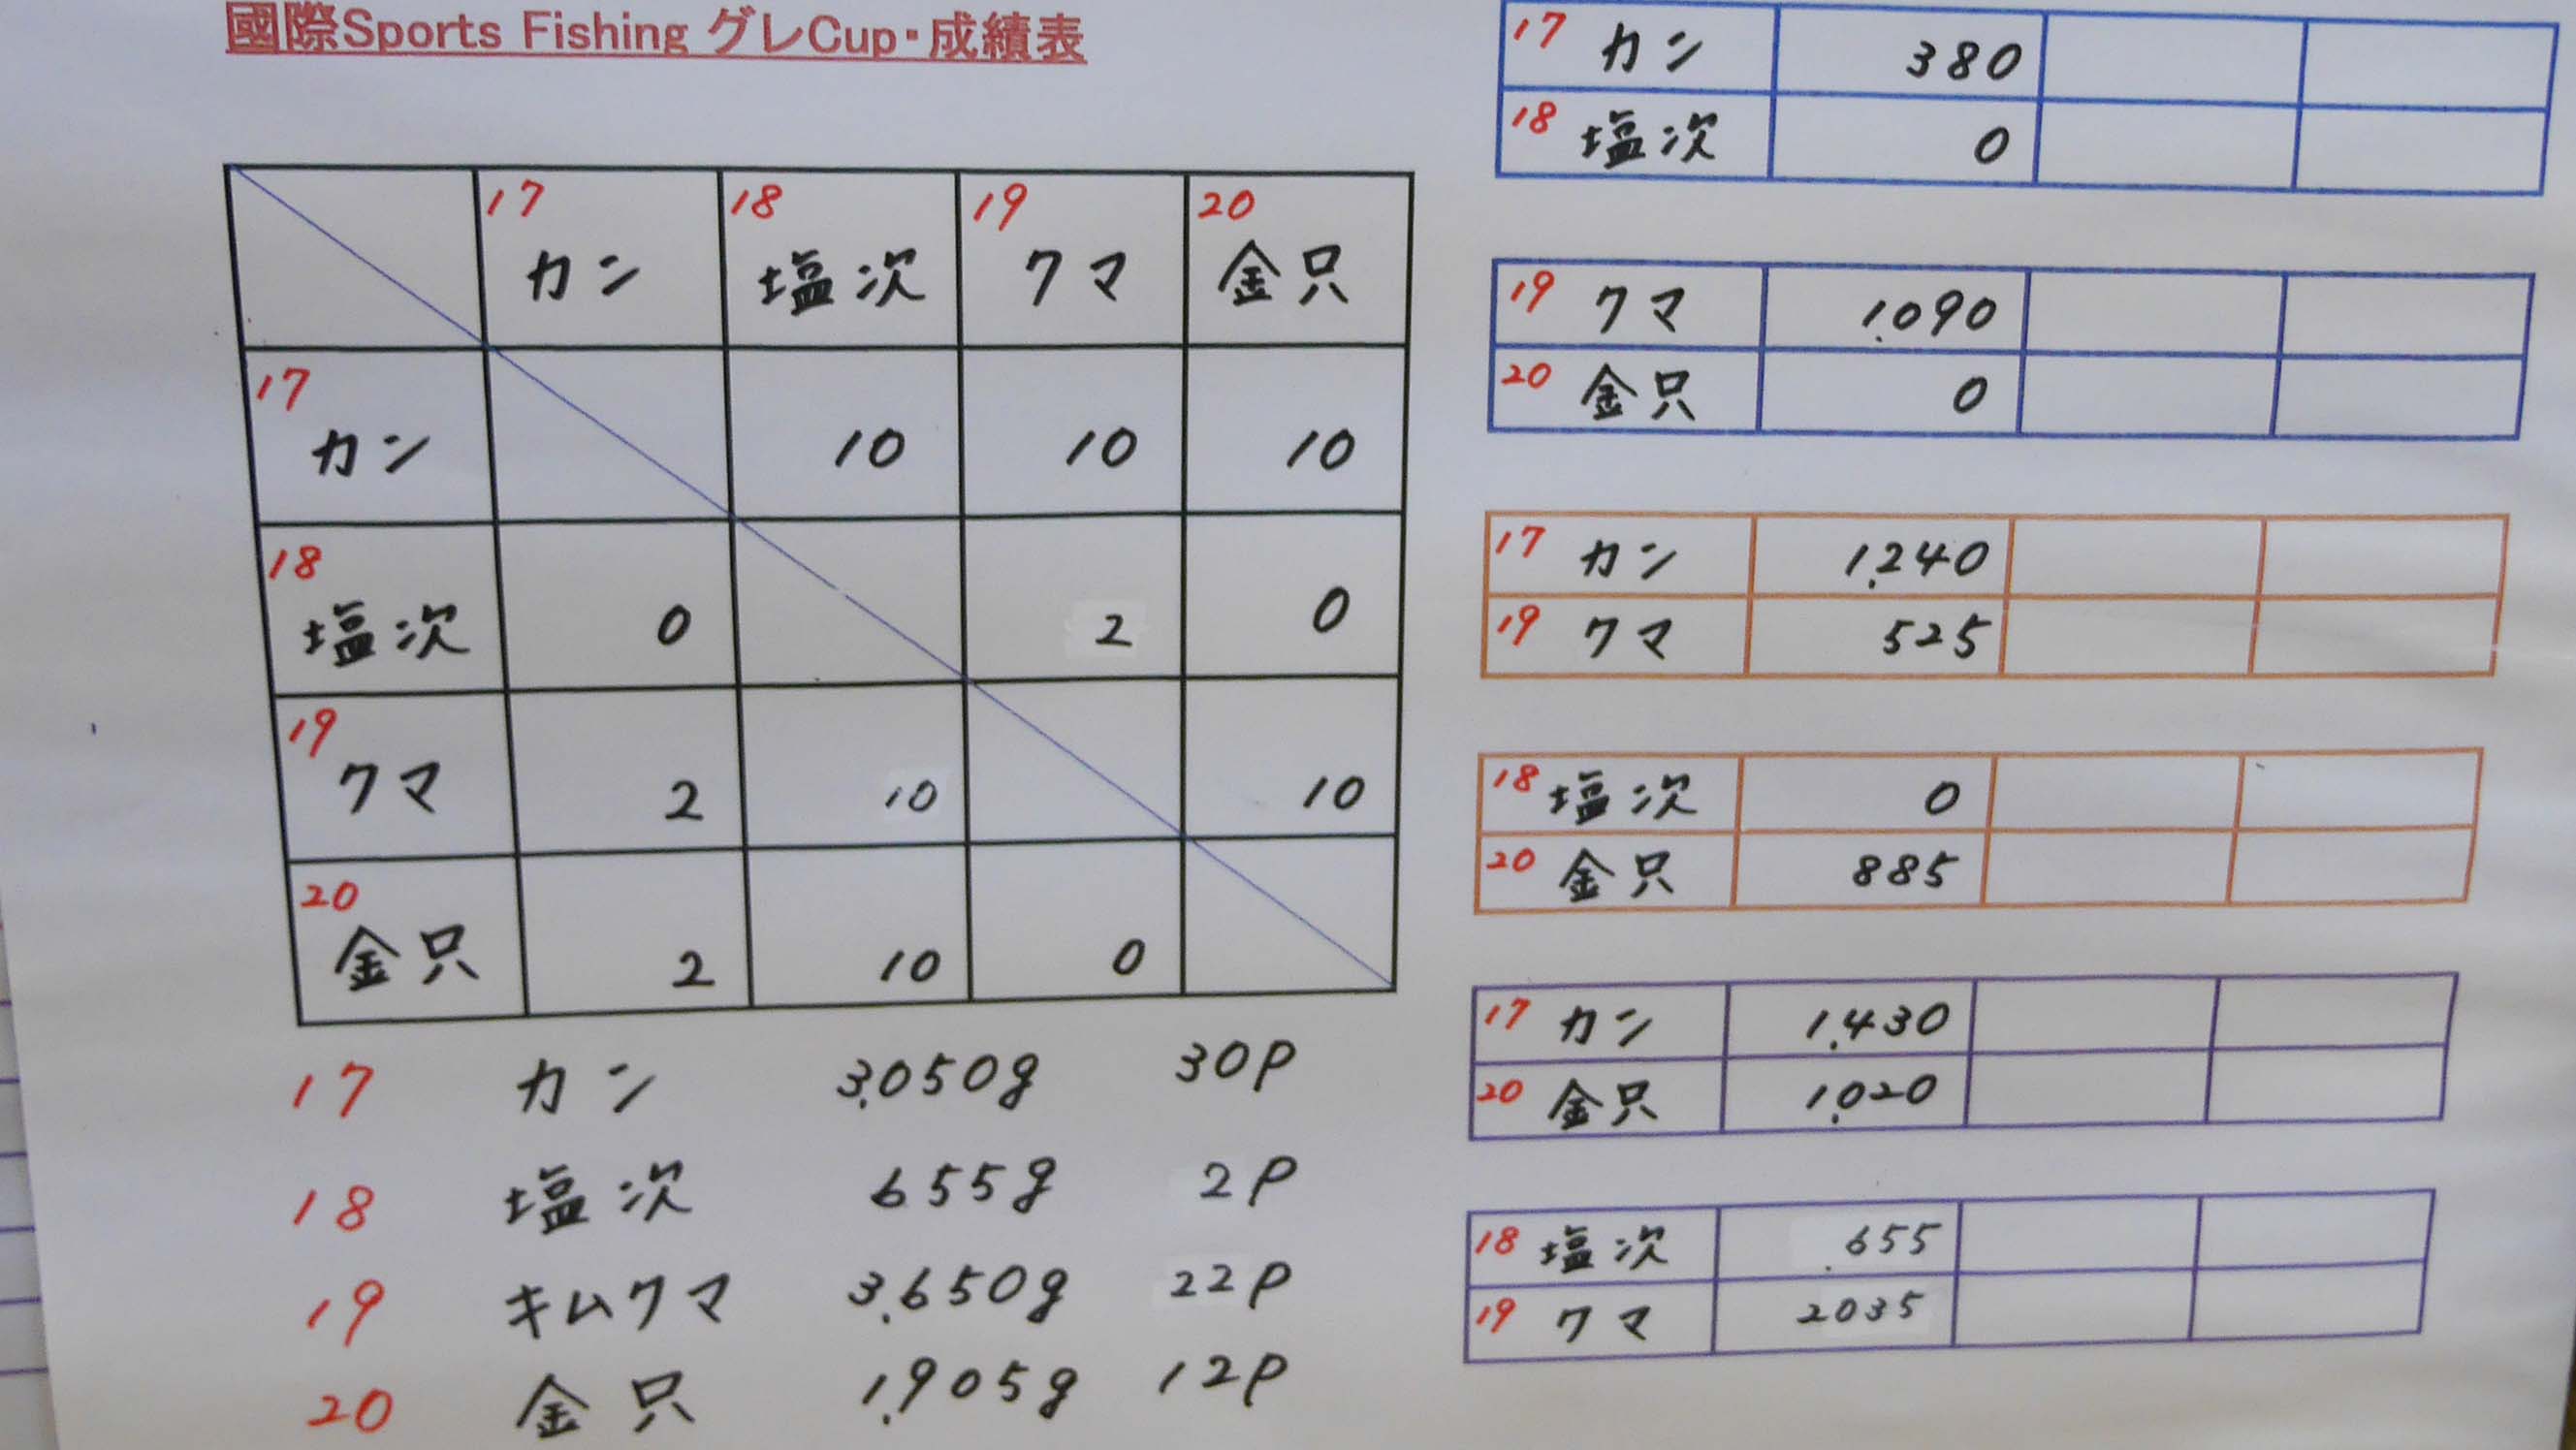 國際Sports Fishing グレCup・成績表
17 18 19 20
カン 塩次 クマ 金只
17 カン 10 10 10
18 塩次 0 2 0
19 クマ 2 10 10
20 金只 2 10 0
17 カン 3.050g 30P
18 塩次 655g 2P
19 キムクマ 3.650g 22P
20 金只 1.905g 12P
17 カン 380
18 塩次 0
19 クマ 1.090
20 金只 0
17 カン 1.240
19 クマ 525
18 塩次 0
20 金只 885
17 カン 1.430
20 金只 1.020
18 塩次 .655
19 クマ 2035